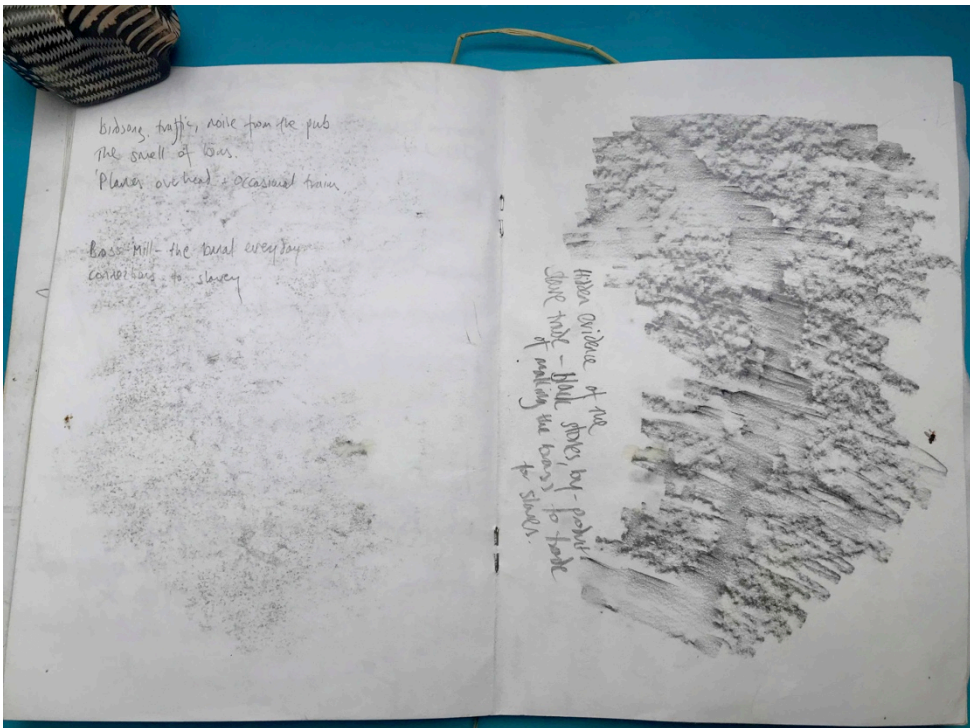 birdsong, traffic, noise from the pub
The smell of
Planes overhead + occasional train
Brass Mill - the banal everyday
connections to slavery
Hidden evidence of the
slave trade - black stones, by-product
of making the brass to trade
for slaves.